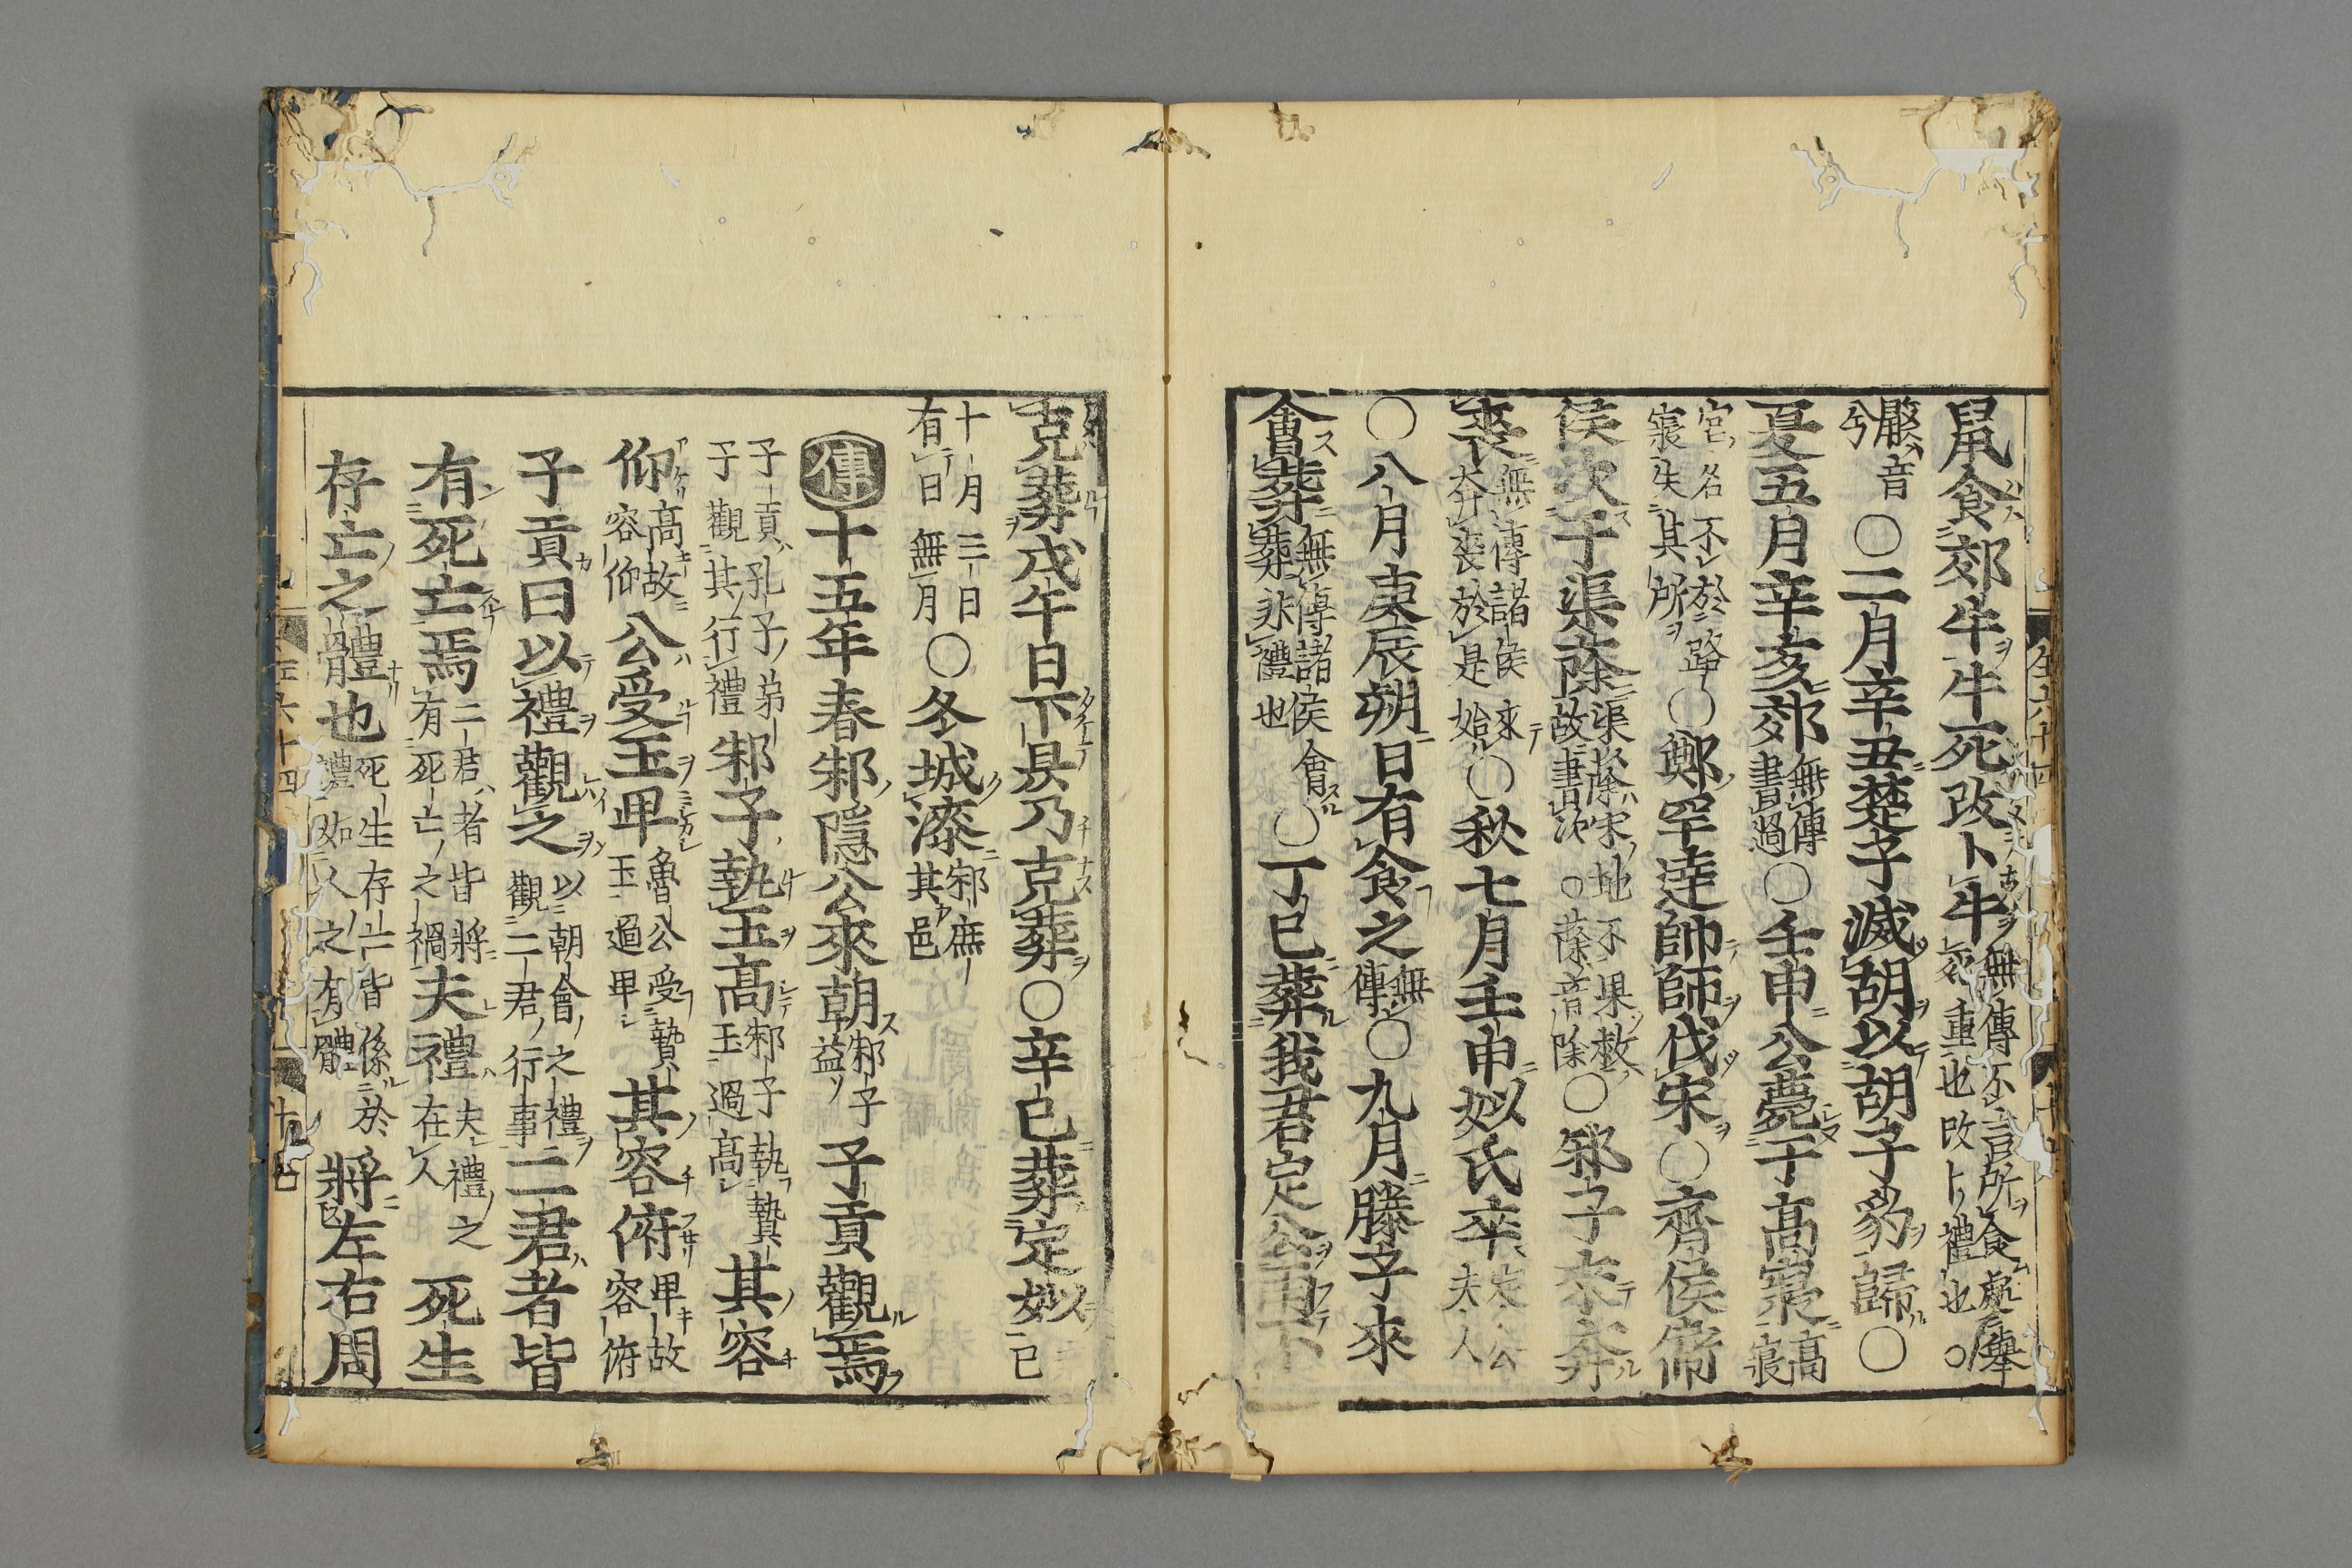 鼠食郊牛牛死改卜牛無傳不言所食處舉死重也改卜禮也○
鼷音兮○二月辛丑楚子滅胡以胡子豹歸○
夏五月辛亥郊無傳書過○壬申公薨于高寢高寢
宮名不於路寢失其所○鄭罕達帥師伐宋○齊侯衛
侯次于渠蒢渠蒢宋地不果救故書次○蒢音除○邾子來奔
喪無傳諸侯來奔喪於是始○秋七月壬申姒氏卒定公夫人
○八月庚辰朔日有食之無傳○九月滕子來
會葬無傳諸侯會葬非禮也○丁巳葬我君定公雨不
克葬戊午日下昃乃克葬○辛巳葬定姒巳
十月三日有日無月○冬城漆邾庶其邑
傳十五年春邾隱公來朝邾子益子貢觀焉
子貢孔子弟子觀其行禮邾子執玉高邾子執贄玉過高其容
仰高故容仰公受玉卑魯公受贄玉過卑其容俯卑故容俯
子貢曰以禮觀之以朝會之禮觀二君行事二君者皆
有死亡焉二君者皆將有死亡之禍夫禮夫禮之在人死生
存亡之體也死生存亡皆係於禮如人之有體將左右周